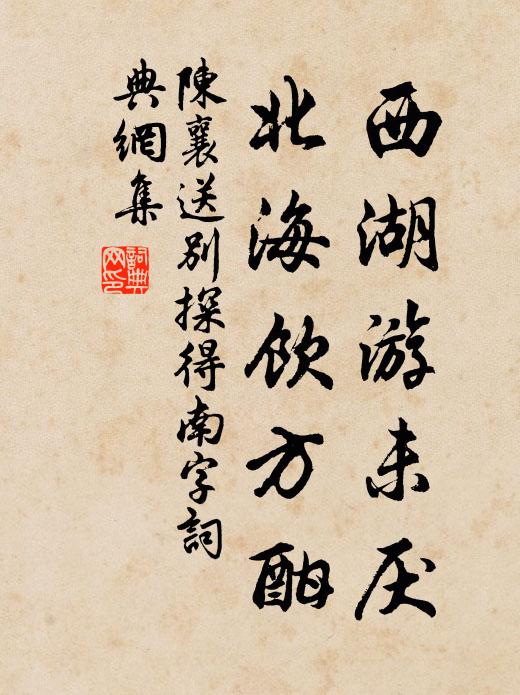 西湖游未厌
北海饮方酣
陳襄送别探得南字詞
典網集
詞典网印